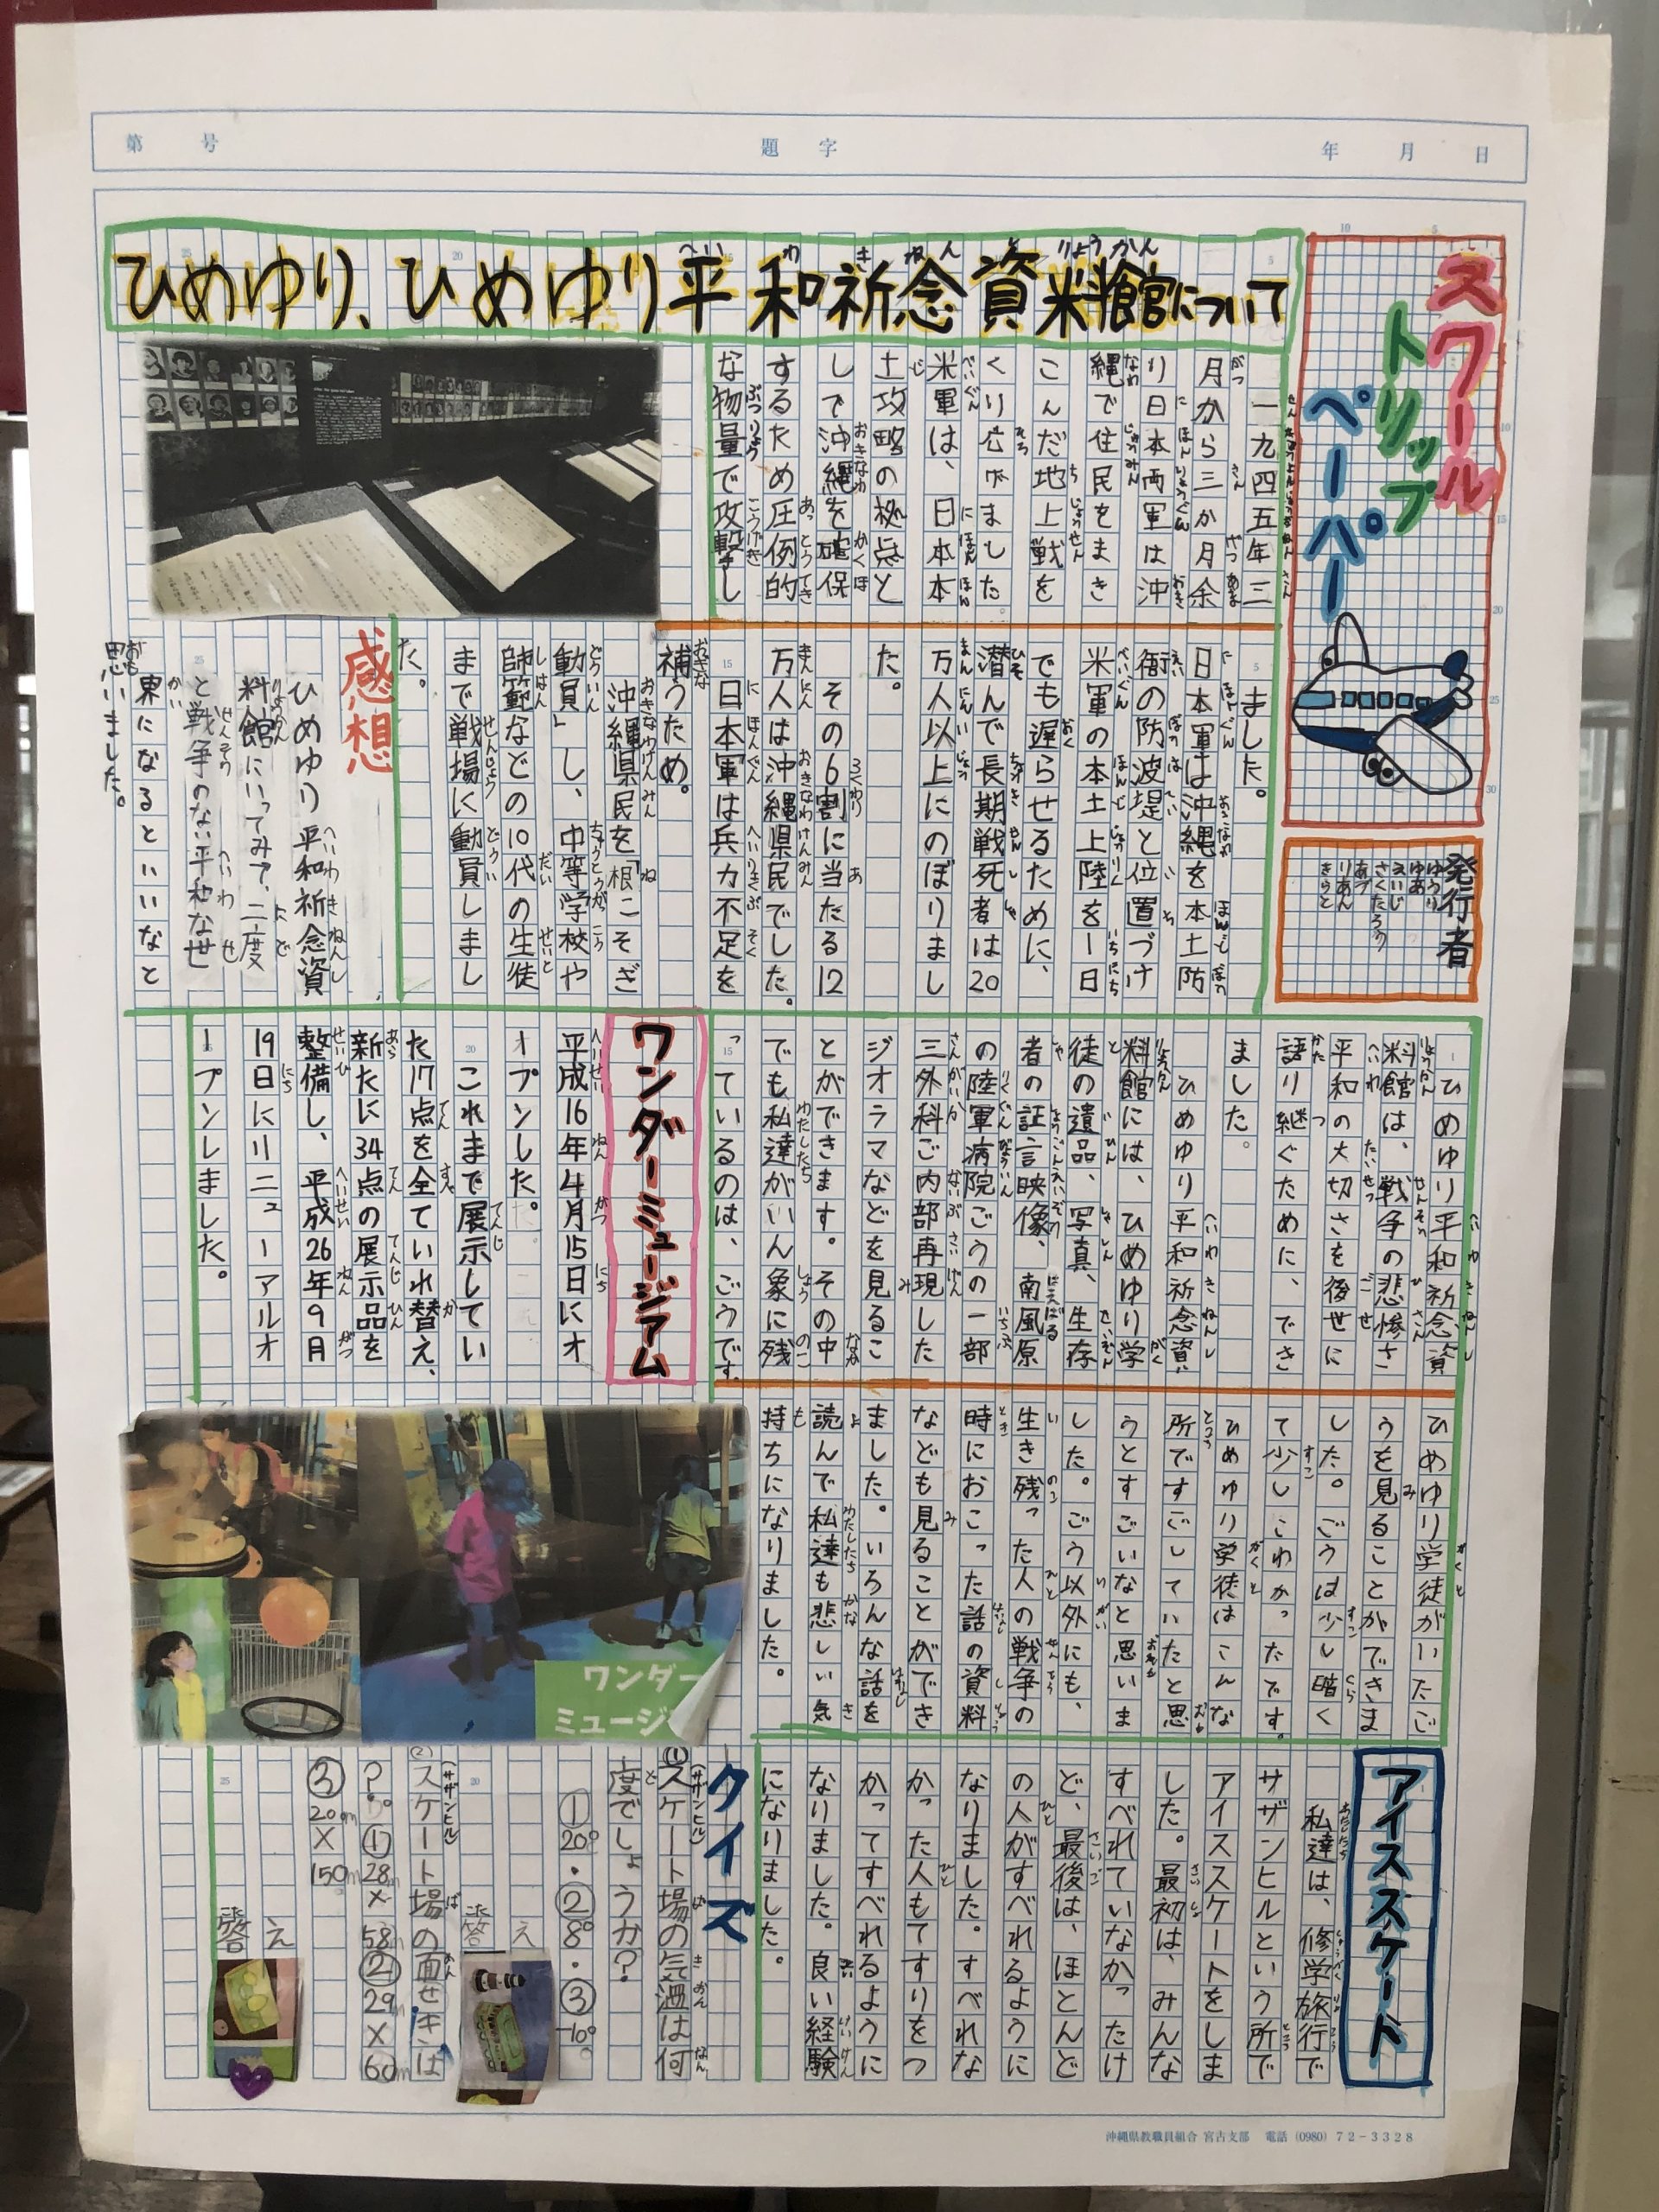 第　号
題字
年　月　日
スクール
トリップ
ペーパー
発行者
ゆうり
ゆあ
えいじ
さくたろう
あづ
りあん
きらと
ひめゆり、ひめゆり平和祈念資料館について
一九四五年三
月から三か月余
り日本両軍は沖
縄で住民をまき
こんだ地上戦を
くり広げました。
米軍は、日本本
土攻略の拠点と
して沖縄を確保
するため圧倒的
な物量で攻撃し
ました。
日本軍は沖縄を本土防
衛の防波堤と位置づけ
米軍の本土上陸を一日
でも遅らせるために、
潜んで長期戦死者は20
万人以上にのぼりまし
た。
その6割に当たる12
万人は沖縄県民でした。
日本軍は兵力不足を
補うため。
沖縄県民を「根こそぎ
動員」し、中等学校や
師範などの10代の生徒
まで戦場に動員しまし
た。
感想
ひめゆり平和祈念資
料館にいってみて、二度
と戦争のない平和なせ
界になるといいなと
思いました。
ひめゆり平和祈念資
料館は、戦争の悲惨さ
平和の大切さを後世に
語り継ぐために、でき
ました。
ひめゆり平和祈念資
料館には、ひめゆり学
徒の遺品、写真、生存
者の証言映像、南風原
の陸軍病院ごうの一部
三外科ご内部再現した
ジオラマなどを見るこ
とができます。その中
でも私達がいん象に残
っているのは、ごうです。
ひめゆり学徒がいたご
うを見ることができま
した。ごうは少し暗く
て少しこわかったです。
ひめゆり学徒はこんな
所ですごしていたと思
うとすごいなと思いま
した。ごう以外にも、
生き残った人の戦争の
時におこった話の資料
なども見ることができ
ました。いろんな話を
読んで私達も悲しい気
持ちになりました。
ワンダーミュージアム
平成16年4月15日にオ
ープンした。
これまで展示してい
た17点を全ていれ替え、
新たに34点の展示品を
整備し、平成26年9月
19日にリニューアルオ
ープンしました。
ワンダー
ミュージ
アイススケート
私達は、修学旅行で
サザンヒルという所で
アイススケートをしま
した。最初は、みんな
すべれていなかったけ
ど、最後は、ほとんど
の人がすべれるように
なりました。すべれな
かった人もてすりをつ
かってすべれるように
なりました。良い経験
になりました。
クイズ
①スケート場の気温は何
(サザンヒル)
度でしょうか？
①20°・②8°・③-10°
答え
②スケート場の面せきは
(サザンヒル)
？①28m×58m②29m×60m
③20m×150m
答え
沖縄県教職員組合 宮古支部　電話 (0980) 72-3328